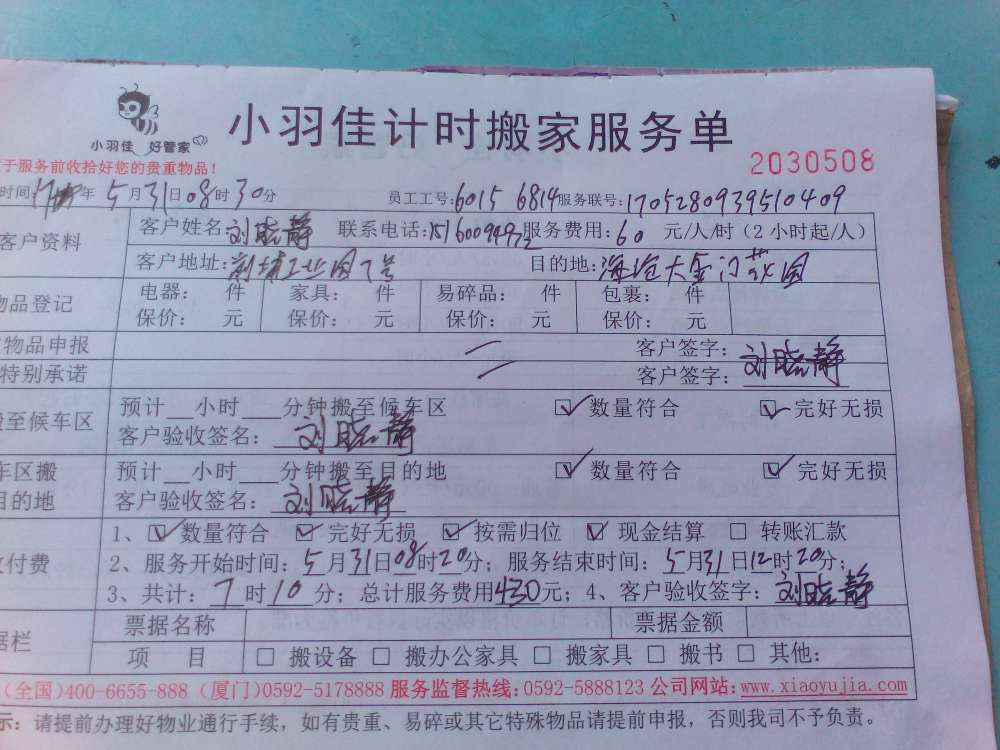 小羽佳 好管家
小羽佳计时搬家服务单
于服务前收拾好您的贵重物品!
2030508
时间: 年5月31日08时30分 员工工号:6015 6814 服务联号:1705280939510409
客户资料 客户姓名:刘晓静 联系电话: 服务费用:60 元/人/时(2小时起/人)
客户地址: 工业园7号 目的地:海沧大金门 园
物品登记 电器: 件 家具: 件 易碎品: 件 包裹: 件
保价: 元 保价: 元 保价: 元 保价: 元
物品申报 客户签字:刘晓静
特别承诺 客户签字:
搬至候车区 预计__小时___分钟搬至候车区 ☑数量符合 ☑完好无损
客户验收签名:刘晓静
车区搬 预计__小时___分钟搬至目的地 ☑数量符合 ☑完好无损
目的地 客户验收签名:刘晓静
1、☑数量符合 ☑完好无损 ☑按需归位 ☑现金结算 □转账汇款
付费 2、服务开始时间:5月31日08时20分;服务结束时间:5月31日12时20分;
3、共计:7时10分;总计服务费用430元;4、客户验收签字:刘晓静
据栏 票据名称 票据金额
项 目 □搬设备 □搬办公家具 □搬家具 □搬书 □其他:
(全国)400-6655-888 (厦门)0592-5178888 服务监督热线:0592-5888123 公司网站:www.xiaoyujia.com
示:请提前办理好物业通行手续,如有贵重、易碎或其它特殊物品请提前申报,否则我司不予负责。